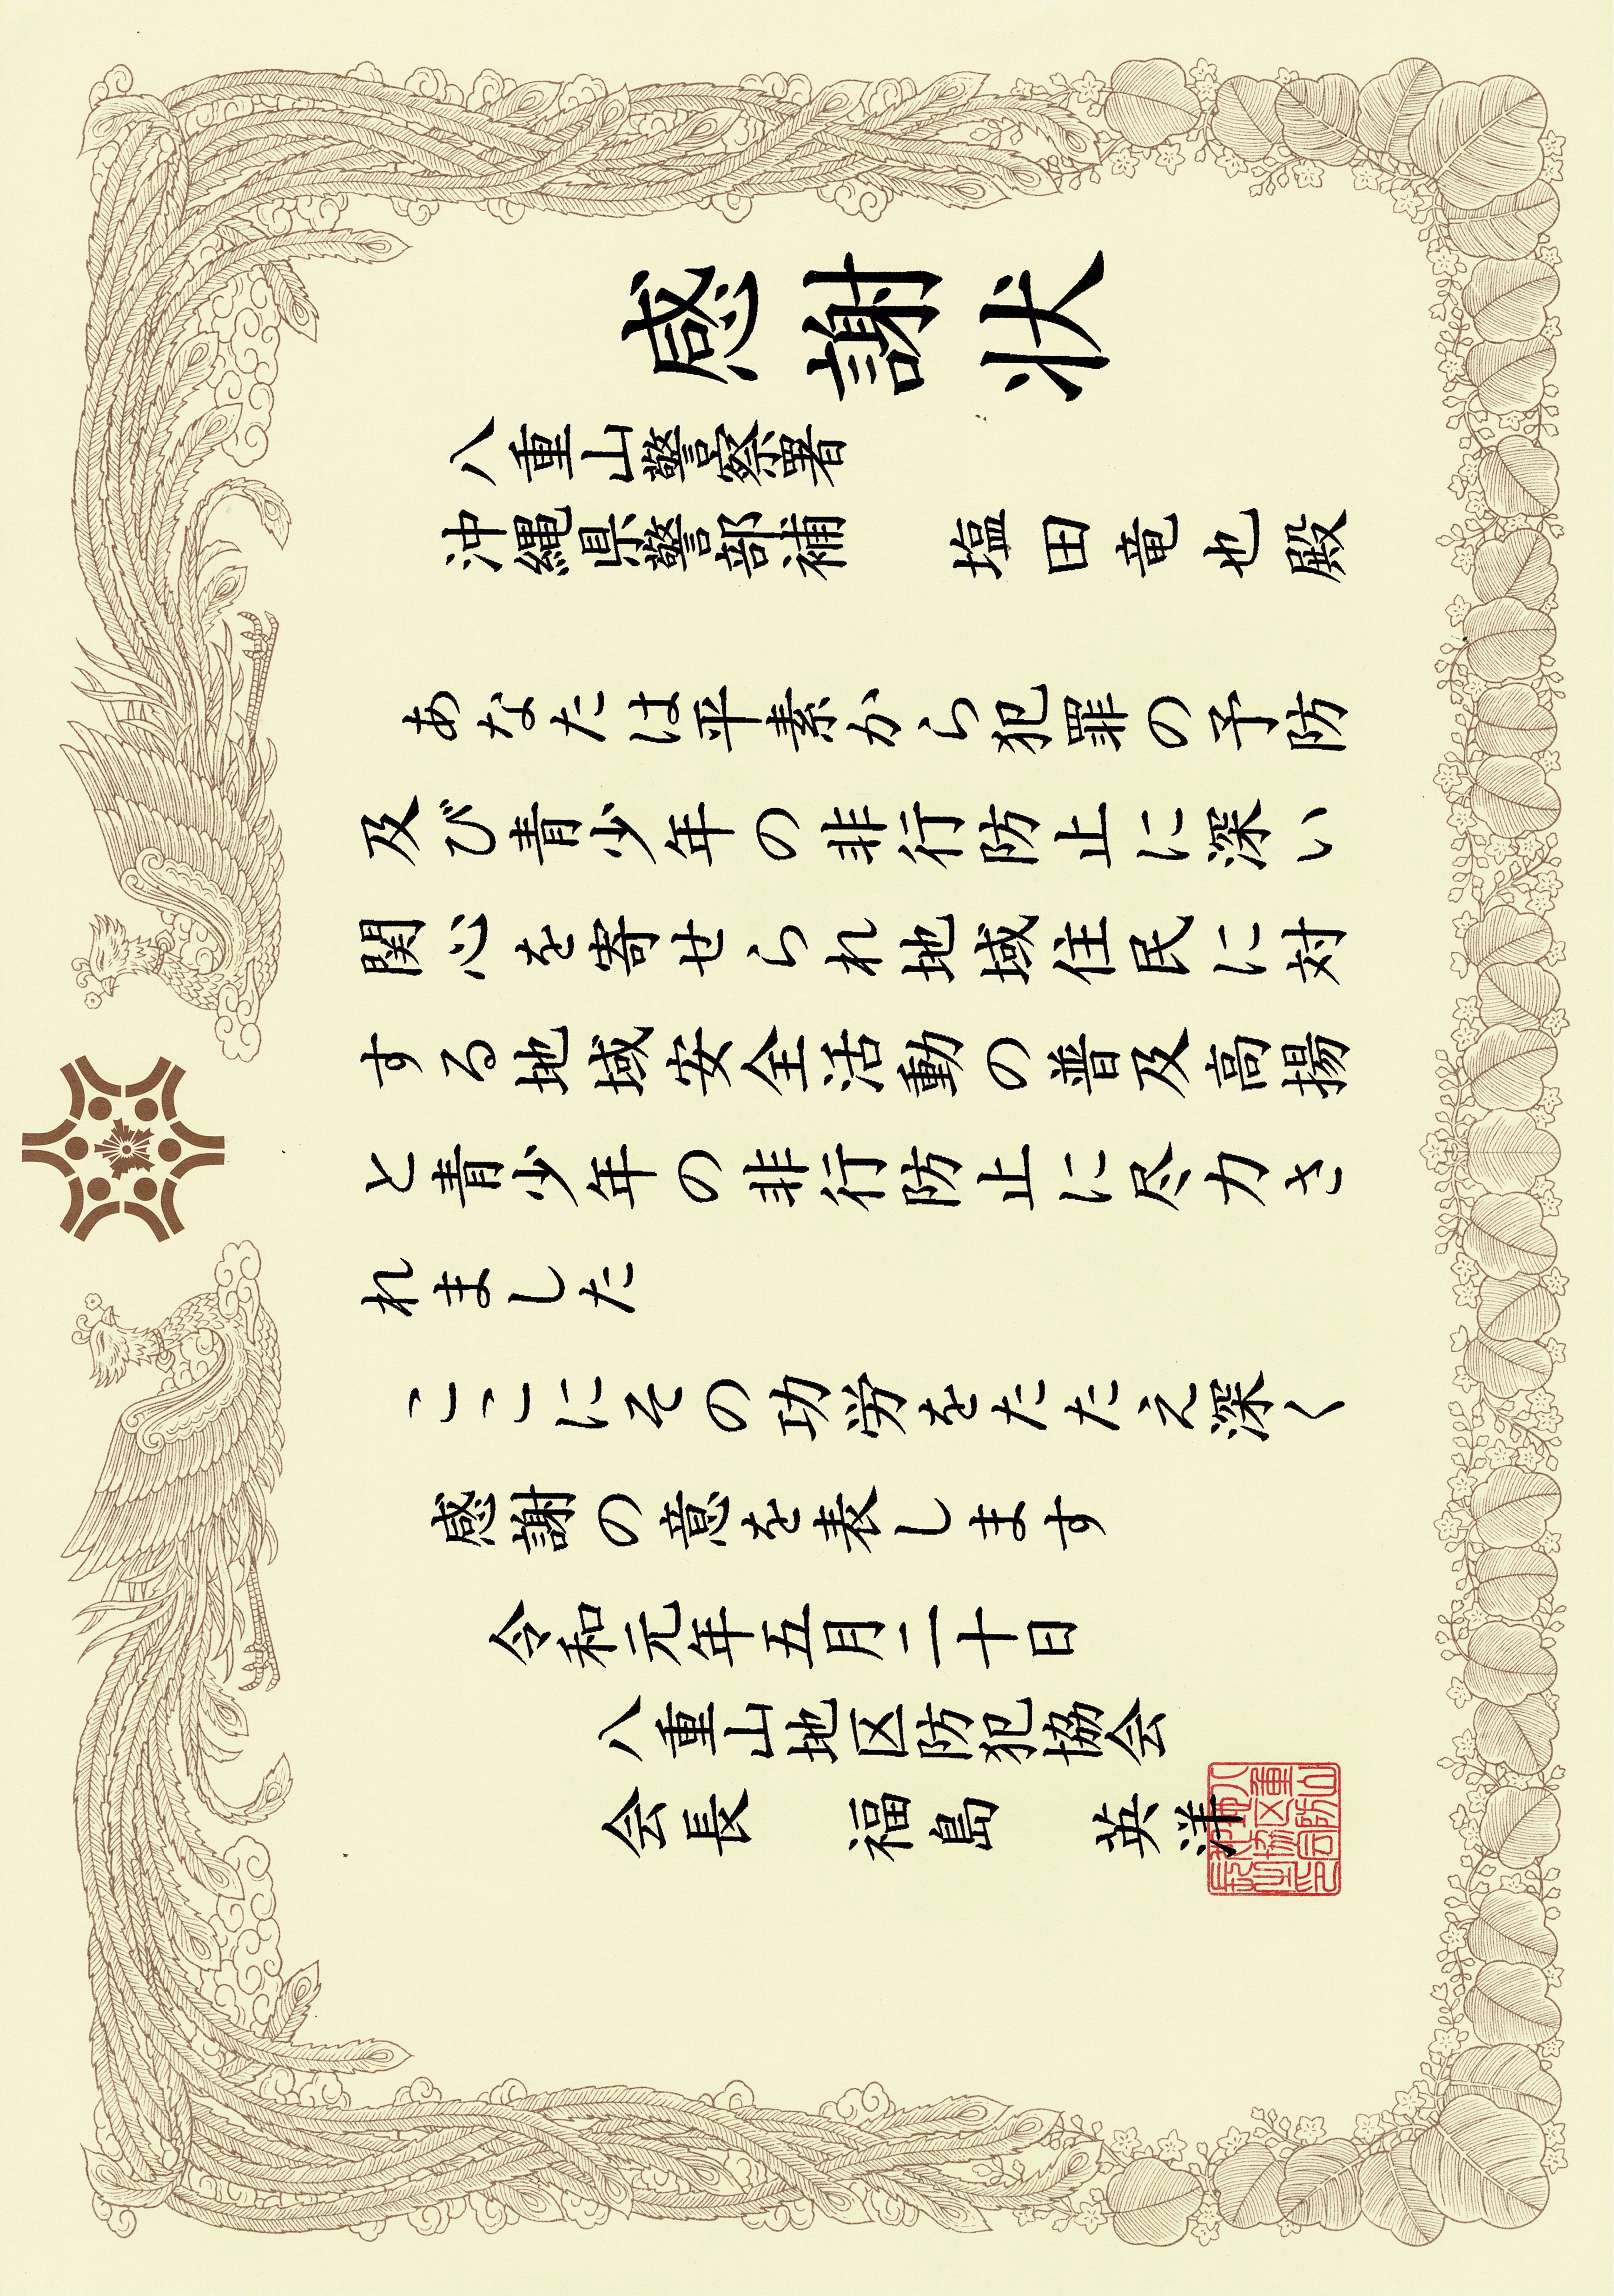 感謝状
八重山警察署
沖縄県警部補　塩田竜也殿
あなたは平素から犯罪の予防
及び青少年の非行防止に深い
関心を寄せられ地域住民に対
する地域安全活動の普及高揚
と青少年の非行防止に尽力さ
れました
ここにその功労をたたえ深く
感謝の意を表します
令和元年五月二十日
八重山地区防犯協会
会長　福島　英洋